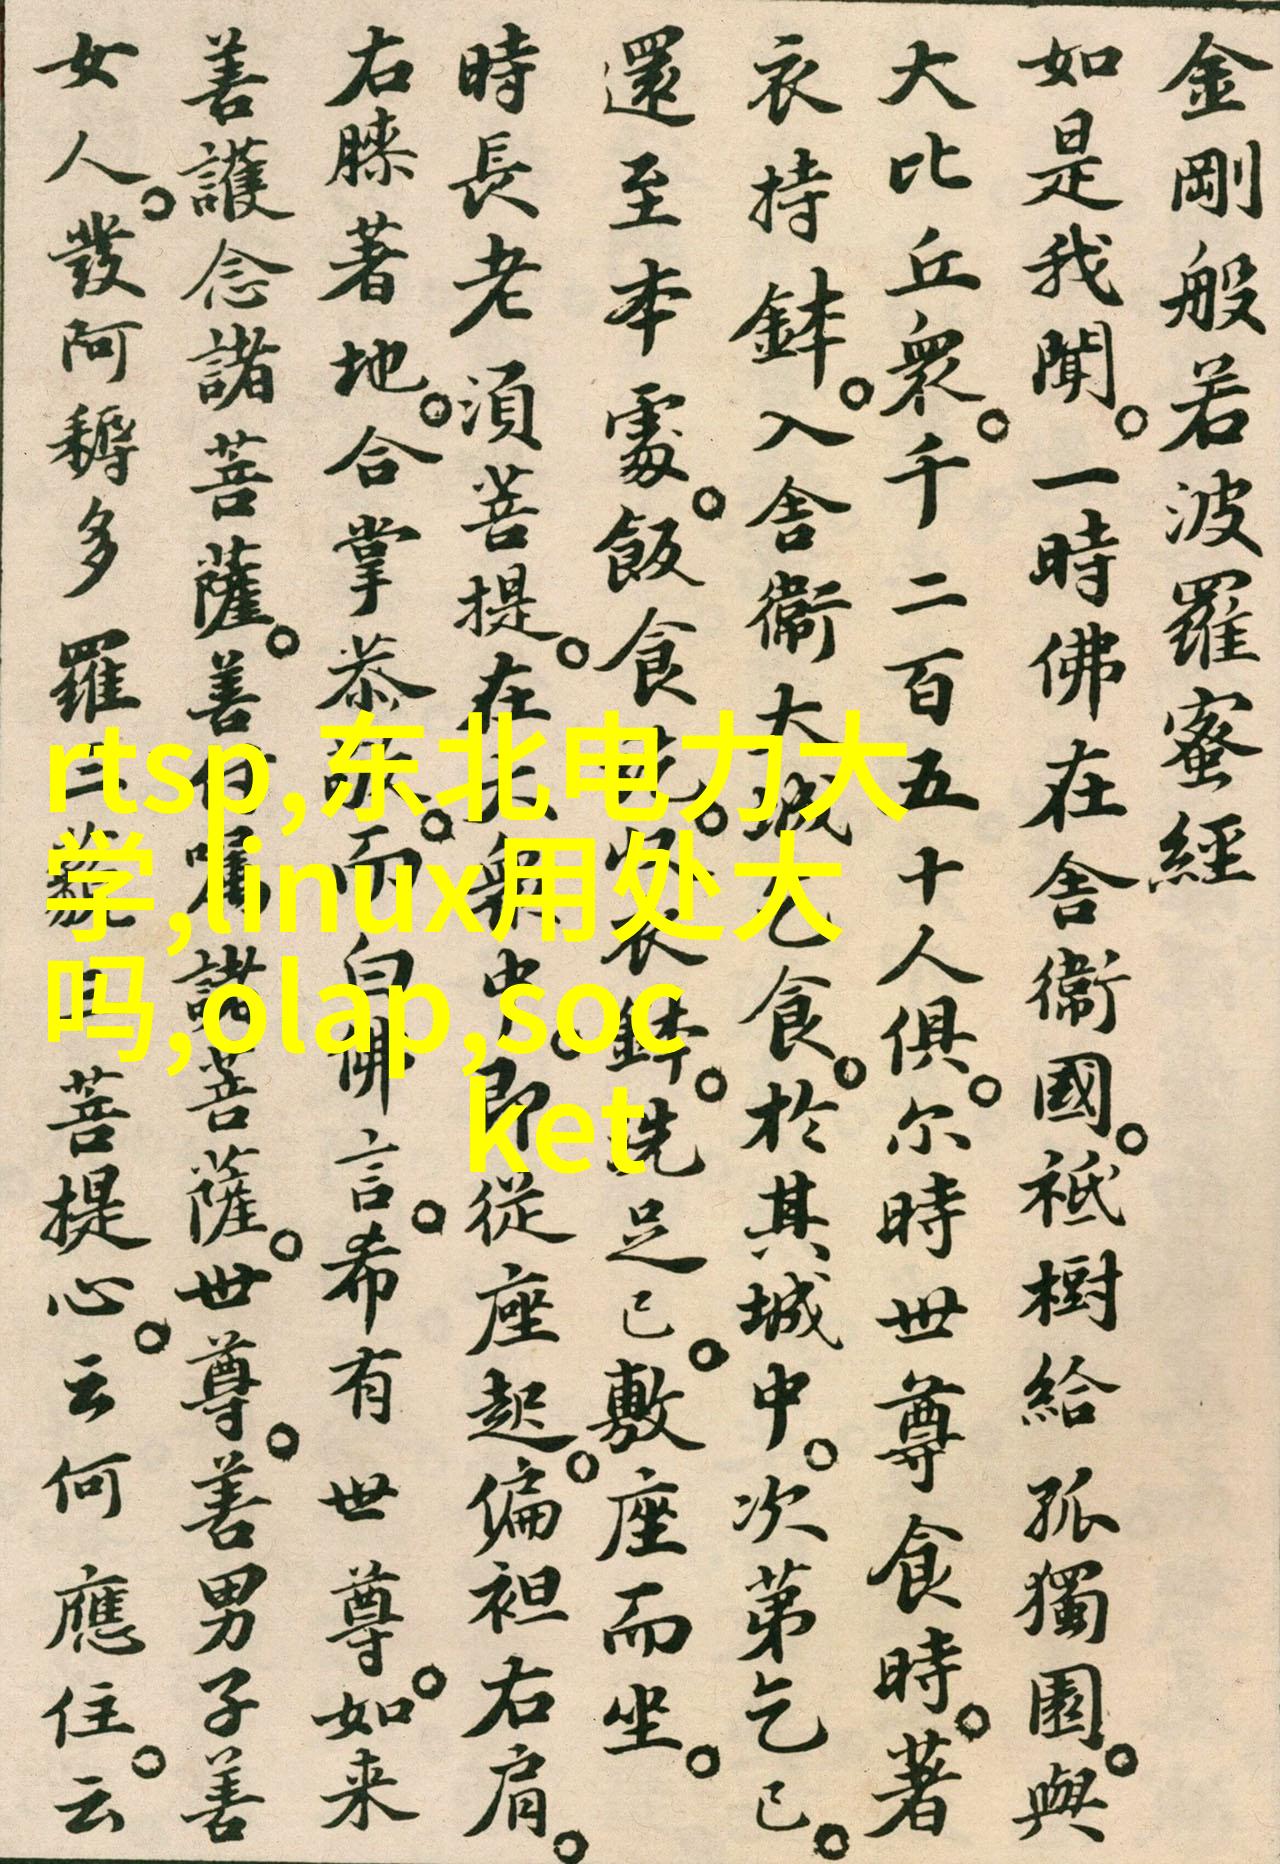 金剛般若波羅蜜經
如是我聞。一時佛在舍衞國。祇樹給孤獨園。與
大比丘衆。千二百五十人俱。尔時世尊食時。著
衣持鉢。入舍衞大城乞食。於其城中。次第乞已。
還至本處。飯食訖。收衣鉢。洗足已。敷座而坐。
時長老須菩提。在大衆中。即從座起。偏袒右肩。
右膝著地。合掌恭敬。而白佛言。希有世尊。如来
善護念諸菩薩。善付囑諸菩薩。世尊。善男子善
女人。發阿耨多羅三藐三菩提心。云何應住。云
rtsp,东北电力大
学,linux用处大
吗,olap,soc
ket